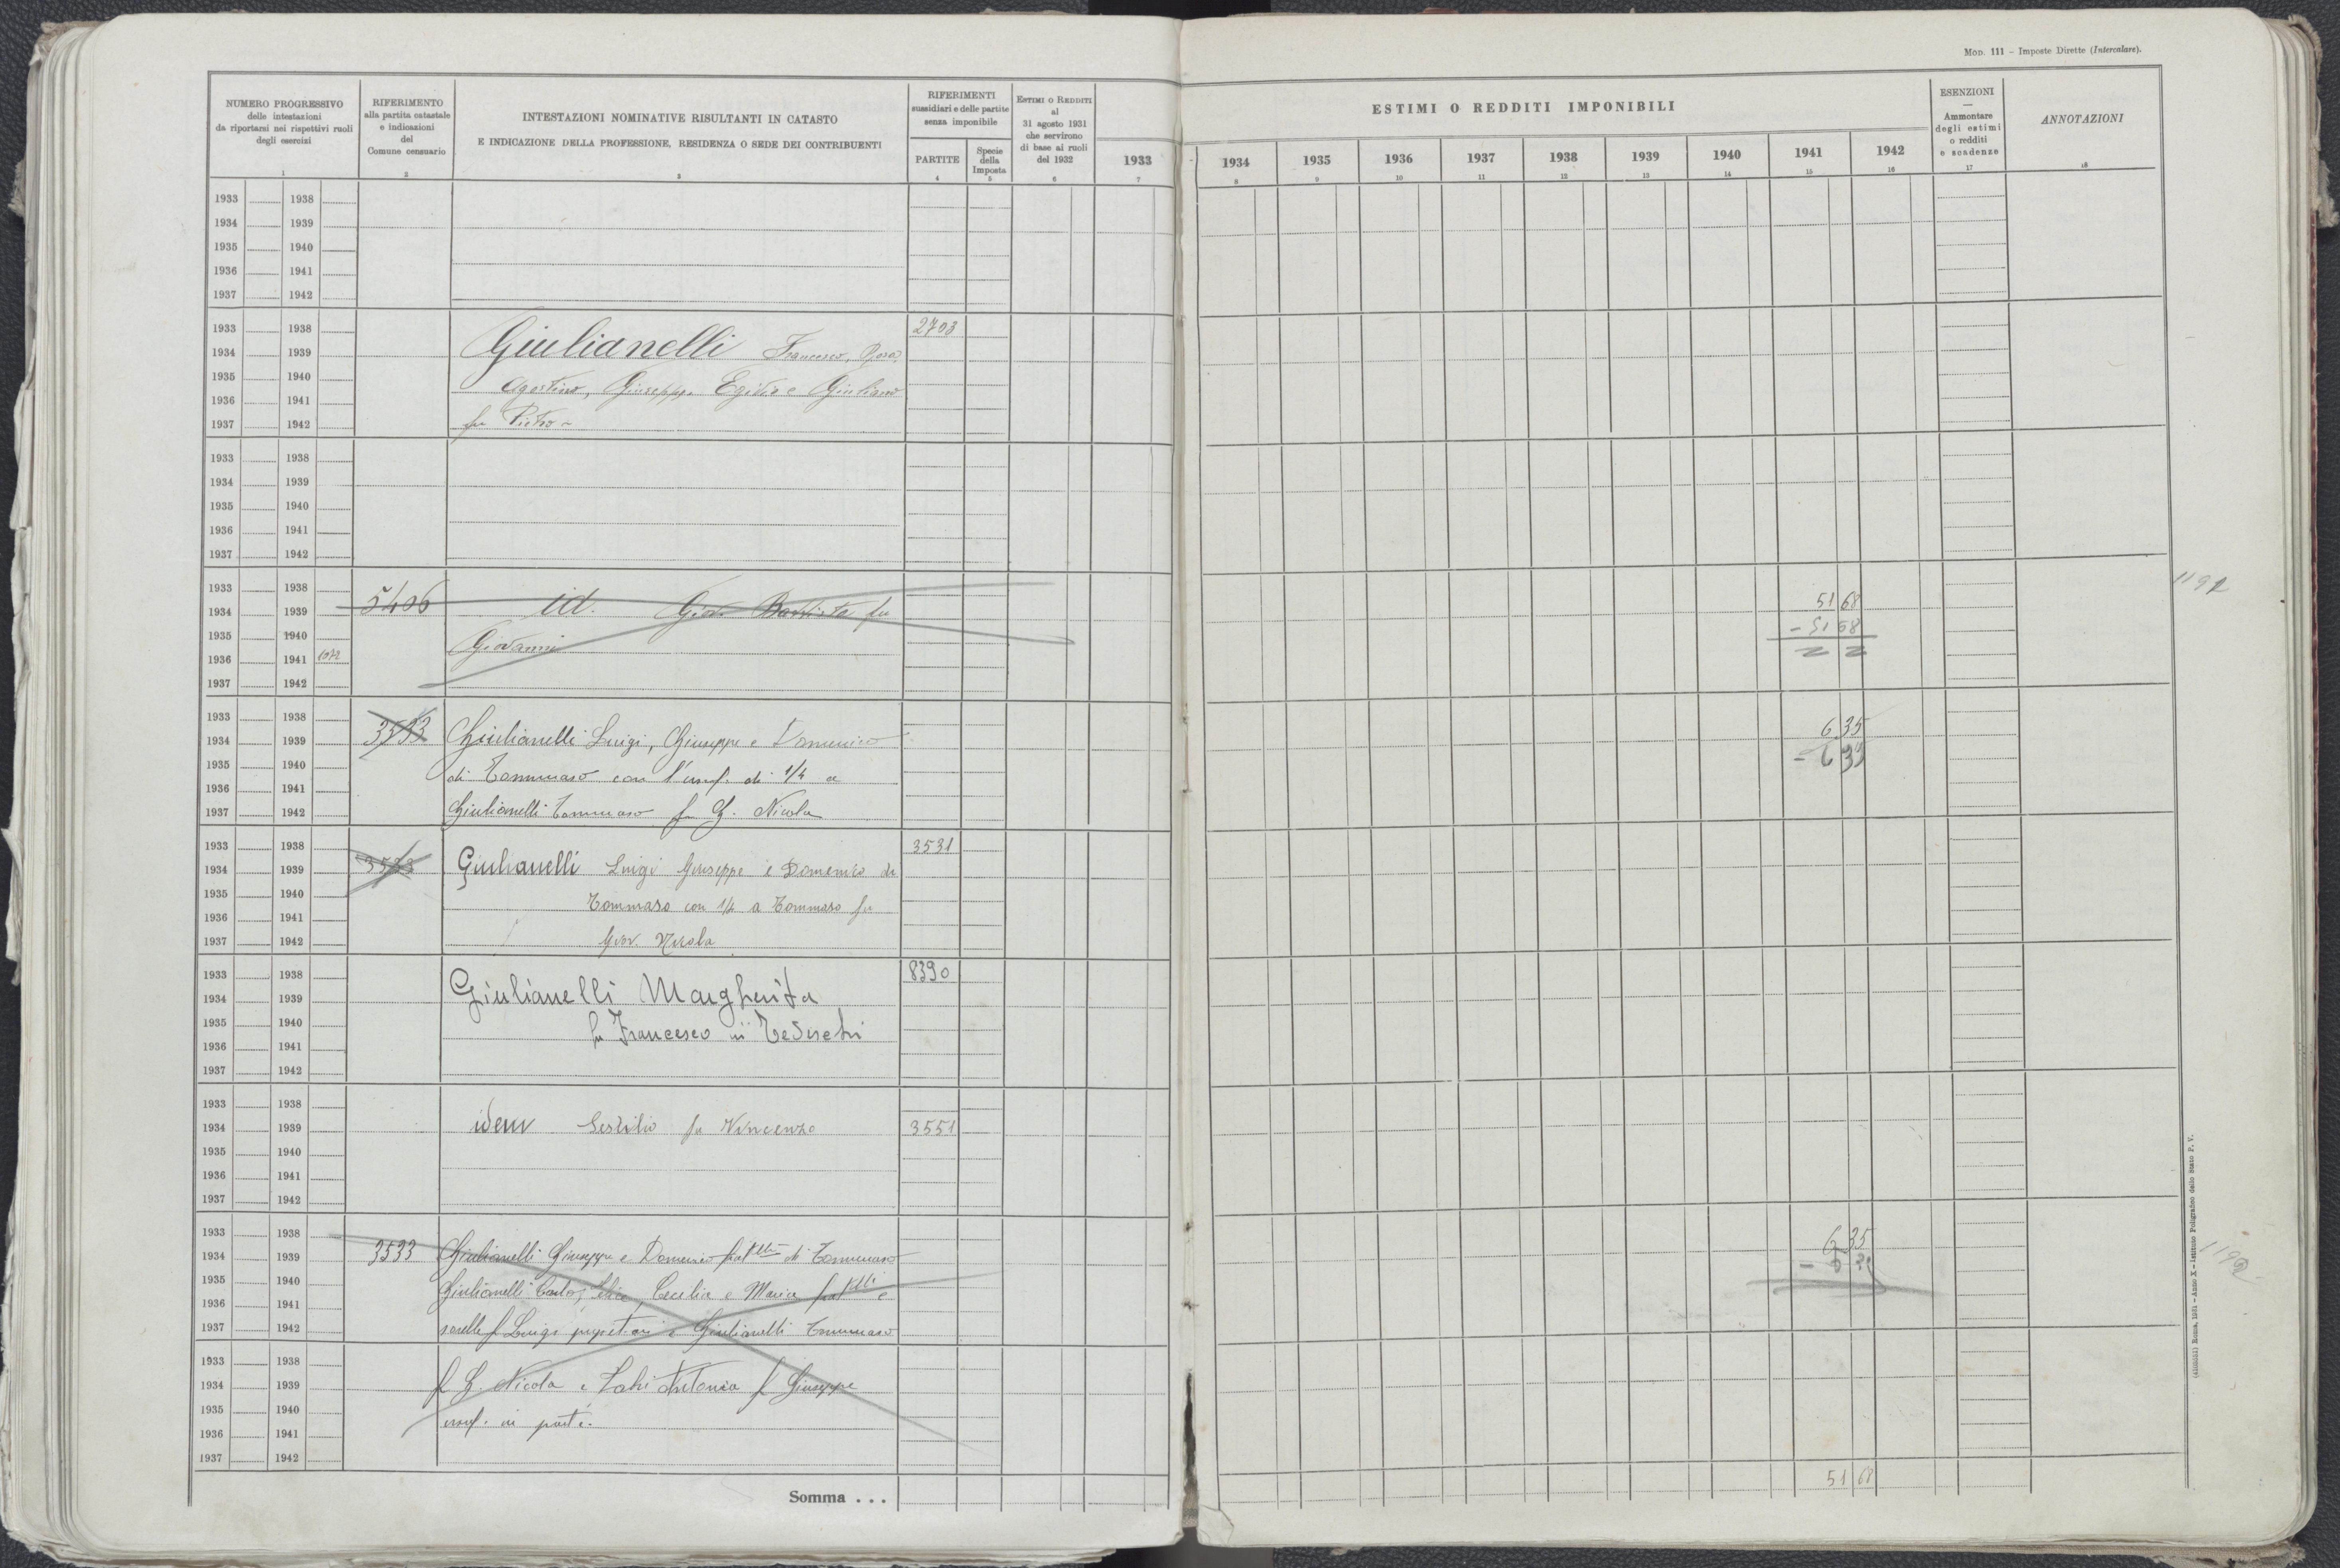 Mod. 111 – Imposte Dirette (Intercalare).
NUMERO PROGRESSIVO
delle intestazioni
da riportarsi nei rispettivi ruoli
degli esercizi
1
RIFERIMENTO
alla partita catastale
e indicazioni
del
Comune censuario
2
INTESTAZIONI NOMINATIVE RISULTANTI IN CATASTO
E INDICAZIONE DELLA PROFESSIONE, RESIDENZA O SEDE DEI CONTRIBUENTI
3
RIFERIMENTI
sussidiari e delle partite
senza imponibile
PARTITE
4
Specie
della
Imposta
5
Estimi o Redditi
al
31 agosto 1931
che servirono
di base ai ruoli
del 1932
6
ESTIMI O REDDITI IMPONIBILI
1933
7
1934
8
1935
9
1936
10
1937
11
1938
12
1939
13
1940
14
1941
15
1942
16
ESENZIONI
—
Ammontare
degli estimi
o redditi
e scadenze
17
ANNOTAZIONI
18
1933 1938
1934 1939
1935 1940
1936 1941
1937 1942
1933 1938 2703
1934 1939 Giulianelli Francesco, Rosa,
1935 1940 Agostino, Giuseppe, Egidio e Giuliano
1936 1941
1937 1942 fu Pietro
1933 1938
1934 1939
1935 1940
1936 1941
1937 1942
1933 1938
1934 1939 5406 id. Giov. Battista fu 51 68
1935 1940 Giovanni - 51 68
1936 1941
1937 1942
1192
1933 1938 6 35
1934 1939 3533 Giulianelli Luigi, Giuseppe e Domenico
1935 1940 di Tommaso con l'usuf. di 1/4 a - 6 35
1936 1941
1937 1942 Giulianelli Tommaso fu G. Nicola
1933 1938 3531
1934 1939 3533 Giulianelli Luigi Giuseppe e Domenico di
1935 1940
1936 1941 Tommaso con 1/4 a Tommaso fu
1937 1942 Giov. Nicola
1933 1938 8390
1934 1939 Giulianelli Margherita
1935 1940 fu Francesco in Tedeschi
1936 1941
1937 1942
1933 1938
1934 1939 idem Sestilio fu Vincenzo 3551
1935 1940
1936 1941
1937 1942
1933 1938 6 35
1934 1939 3533 Giulianelli Giuseppe e Domenico fratelli di Tommaso
1935 1940 Giulianelli Carlo, Cecilia e Maria fratelli e
1936 1941
1937 1942 sorelle fu Luigi propretari e Giulianelli Tommaso
1192
1933 1938
1934 1939 fu G. Nicola e Antonia fu Giuseppe
1935 1940 usuf. in parte.
1936 1941
1937 1942
Somma . . . 51 68
(4103251) Roma, 1931 – Anno X – Istituto Poligrafico dello Stato P. V.